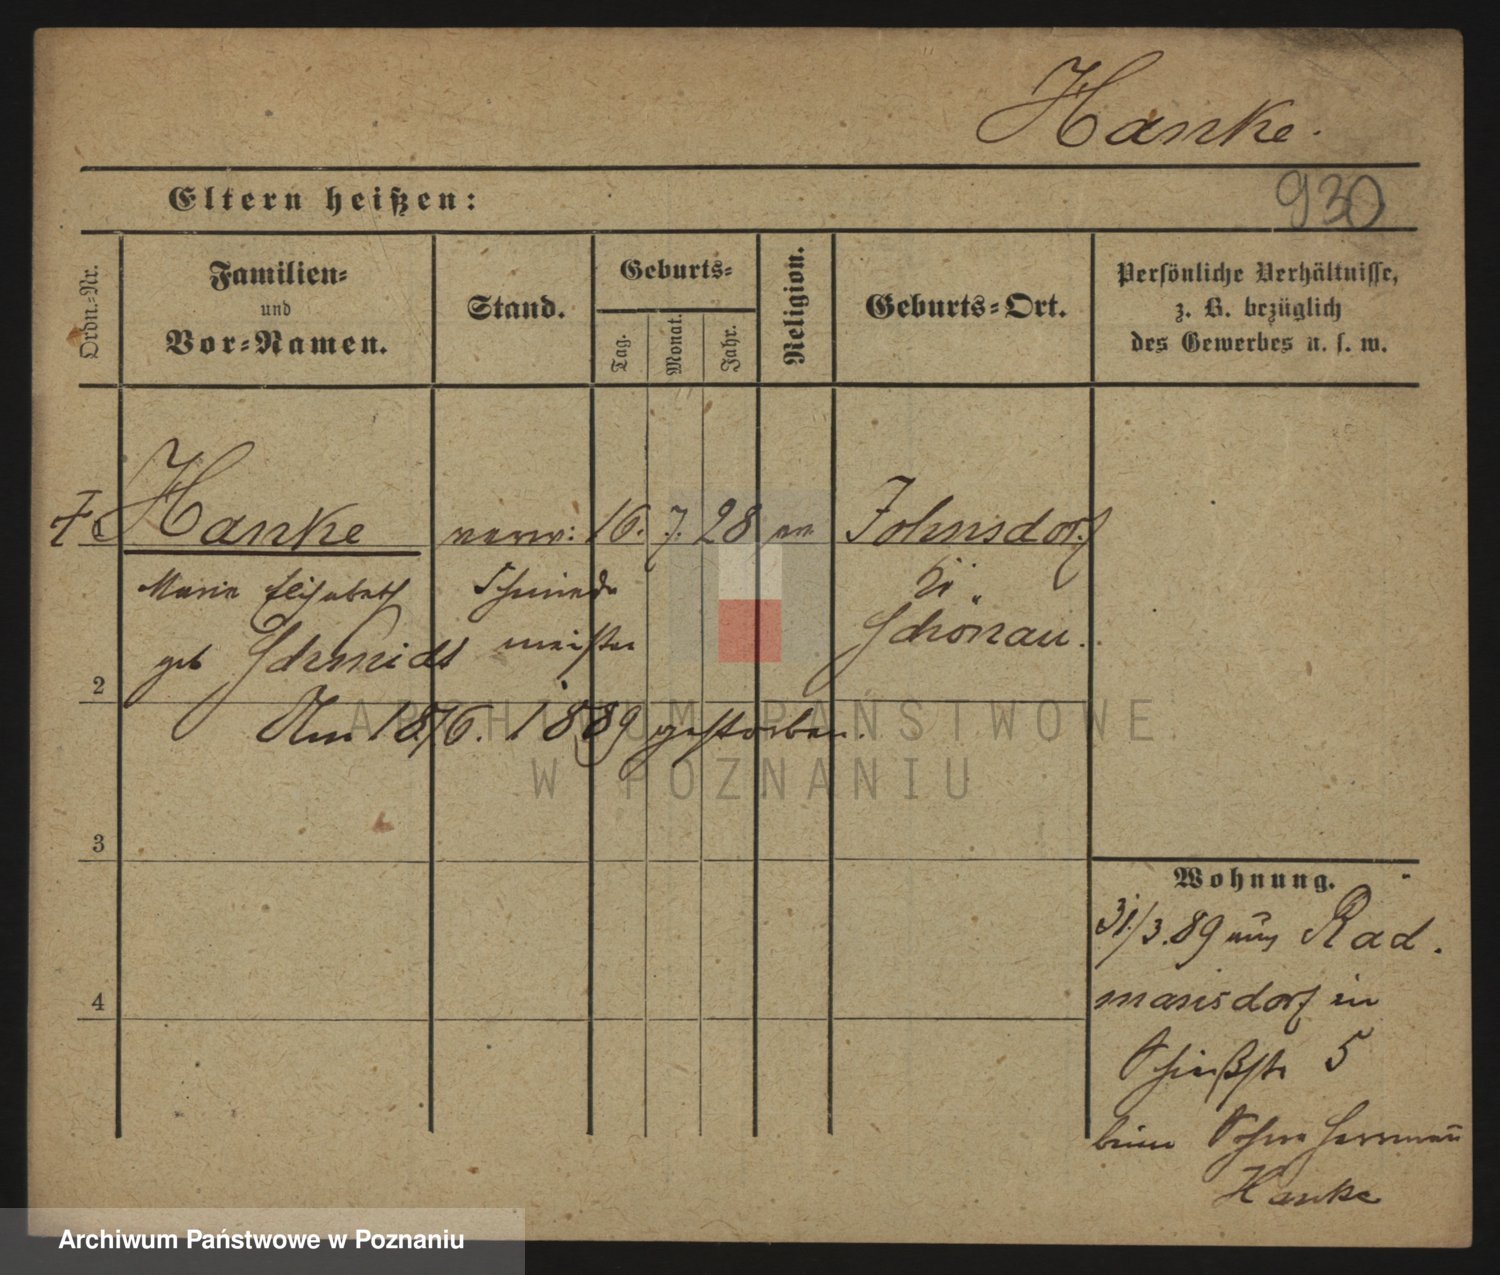 Hanke.
Eltern heißen:
930
Ordn.-Nr.
Familien-
und
Vor-Namen.
Stand.
Geburts-
Tag.
Monat.
Jahr.
Religion.
Geburts-Ort.
Persönliche Verhältnisse,
z. B. bezüglich
des Gewerbes u. s. w.
Hanke verw: 16. 7. 28 ev Johnsdorf
Marie Elisabeth Schmiede Kr
geb Schmidt meister Schönau.
2
Am 18/6. 1889 gestorben.
ARCHIWUM PAŃSTWOWE
W POZNANIU
3
Wohnung.
31/3.89 aus Rad
4
mansdorf in
Schießstr 5
beim Sohne Herrmann
Hanke
Archiwum Państwowe w Poznaniu